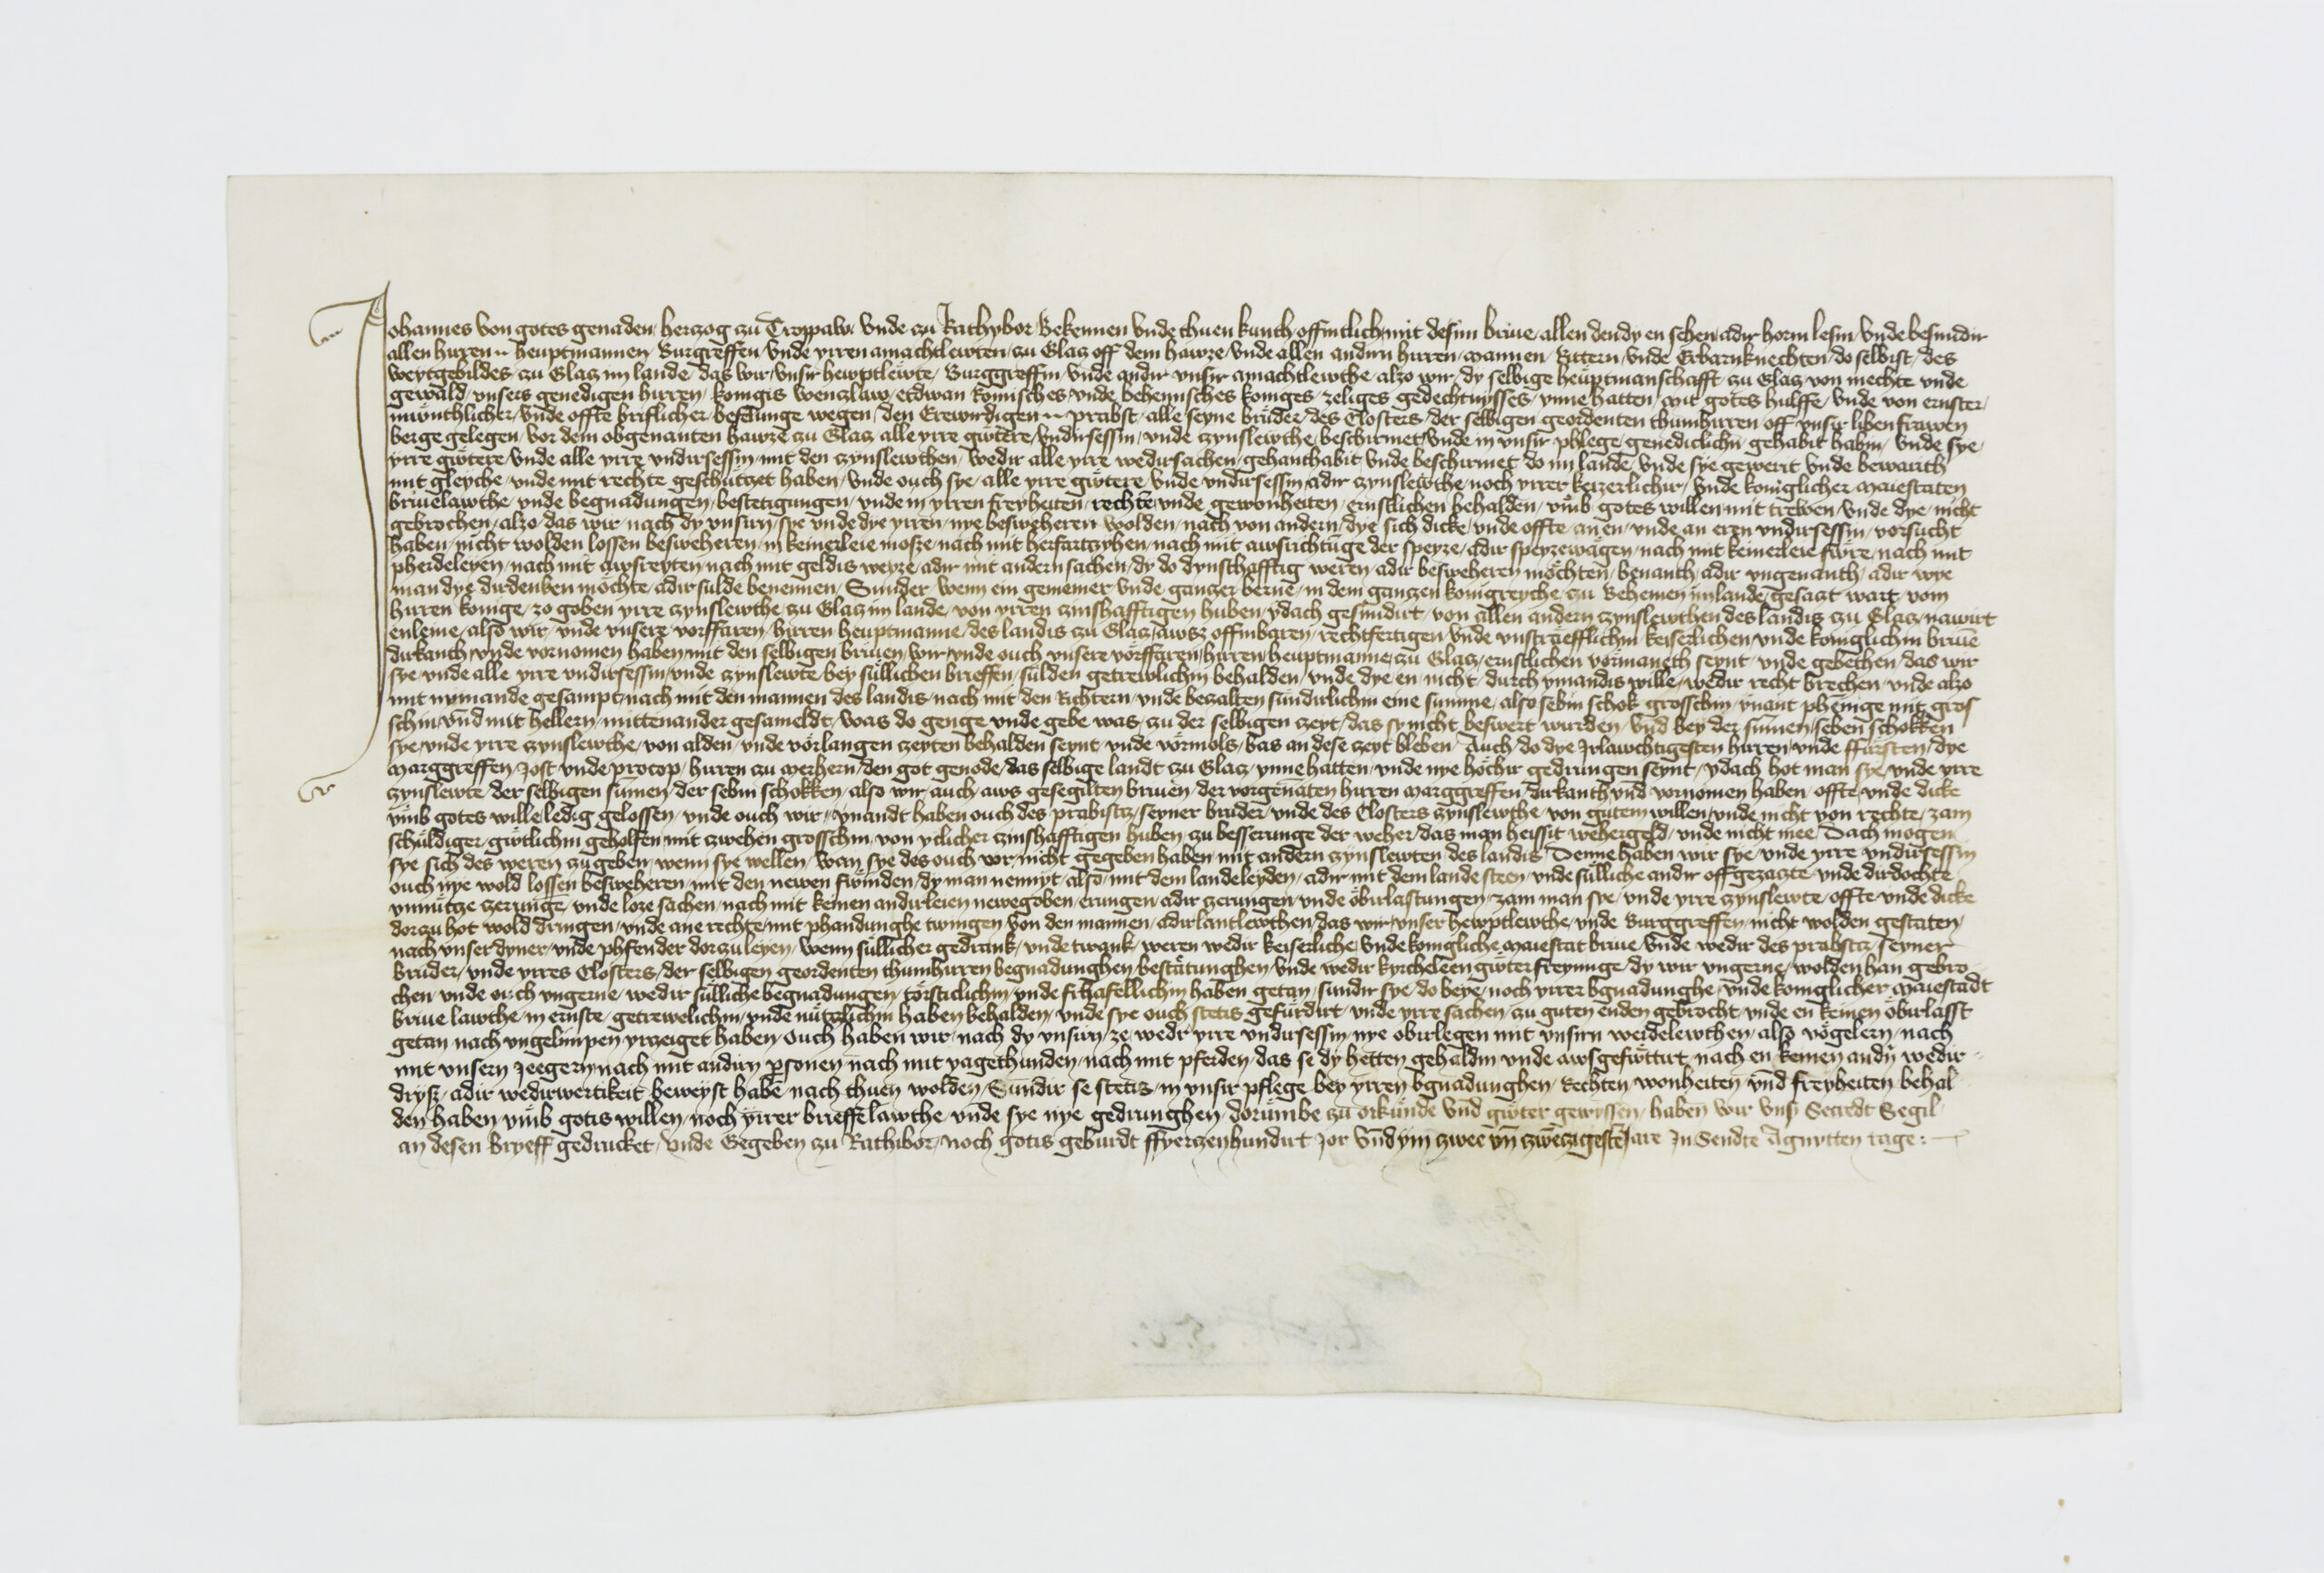 Johannes von gotes genaden herzog zu Troppaw vnde zu Rathybor Bekennen vnde thuen kunth offintlich mit desim briue allen den dy en sehen adir horin lesin vnde besundir
allen hirren heuptmannen Burgreffen vnde yrren amachtlewten zu Glaz off dem hawze vnde allen andirn hirren mannen Rittern vnde Erbarnknechten do selbist des
weytgebildes zu Glaz im lande das wir vnsir hewptlewte Burggreffin vnde andir vnsir amachtlewthe alzo wir dy selbige heuptmanschafft zu Glaz von mechte vnde
gewald vnsers genedigen hirren konigis Wenzlaw etdwan Romisches vnde behemisches koniges zeliges gedechtnysses ynne hatten mit gotes hulffe vnde von ernster
muonthlicher vnde offte briflicher befelunge wegen den Erewirdigen prabst alle seyne bruder des Closters der selbigen geordenten thumhirren off vnsir liben frawen
berge gelegen vor dem obgenanten hawze zu Glaz alle yrre guotere vndirsessin vnde zynslewthe beschirmet vnde in vnsir phlege genediclichin gehabit habin vnde sye
yrre guotere vnde alle yrre vndirsessin mit den zynslewthen wedir alle yrre wedirsachen gehanthabit vnde beschirmet do im lande vnde sye gewerit vnde bewarith
mit gleyche vnde mit rechte geschutzet haben vnde ouch sye alle yrre guotere vnde vndirsessin adir zynslewthe noch yrrer keizerlichir vnde koniglicher maiestaten
briuelawthe vnde begnadungen bestetigungen vnde in yrren freyheiten rechte vnde gewonheiten ernstlichen behalden vmb gotes willen mit trewen vnde dye nicht
gebrochen alzo das wir nach dy vnsirn sye vnde dye yrren nye besweheren wolden nach von andern dye sich dicke vnde offte an en vnde an eren vndirsessin vorsucht
haben nicht wolden lossen besweheren in keinerleie mosze nach mit herfartzyhen nach mit awsrichtunge der speyze adir speyzewagen nach mit keinerleie fuore nach mit
pherdeleyen nach mit awsreyten nach mit geldis weyze adir mit andern sachen dy do dynschafftig weren adir besweheren mochten benanth adir vngenanth adir wye
man dye dirdenken mochte adir sulde benennen Sunder wenn ein gemeiner vnde ganzer berne in dem ganzen konigreyche zu Behemen im lande gesazt wart vom
hirren konige zo goben yrre zynslewthe zu Glaz im lande von yrren zinshafftigen huben ydach gesundirt von allen andern zynslewthen des landis zu Glaz nawirt
enleine also wir vnde vnsere vorffaren hirren heuptmanne des landis zu Glaz awsz offinbaren rechtfertigen vnde vnstraefflichin keiserlichen vnde koniglichin briue
dirkanth vnde vornomen haben mit den selbigen briuen wir vnde ouch vnsere vorffaren hirren heuptmanne zu Glaz ernstlichen vormaneth seynt vnde gebethen das wir
sye vnde alle yrre vndirsessin vnde zynslewte bey sullichen brieffen sulden getrewlichin behalden vnde dye en nicht durch ymandis wille wedir recht brechen vnde alzo
mit nymande gesampt nach mit den mannen des landis nach mit den Richtern vnde bezalten sundirlichin eine summe also sebin schok grosschin ynant phenige mit gros
schin vnd mit hellern mittenander gesameldt was do genge vnde gebe was zu der selbigen zeyt das sy nicht beswert wurden vnd bey der summen seben schokken
sye vnde yrre zynslewthe von alden vnde vorlangen zeyten behalden seynt vnde vormols bas an dese zeyt bleben Auch do dye Irlawchtigesten hirren vnde ffursten dye
Marggreffen Jost vnde procop hirren zu Merhern den got genode das selbige landt zu Glaz ynne hatten vnde nye hochir gedrungen seynt ydach hot man sye vnde yrre
zynslewte der selbigen sumen der sebin schokken also wir auch aws gesegilten briuen der vorgenaten hirren Marggreffen dirkanth vnd vornomen haben offte vnde dicke
vmb gotes wille ledig gelossen vnde ouch wir ynandt haben ouch des prabistz seyner bruder vnde des Closters zynslewthe von gutem willen vnde nicht von rechte zam
schuldiger guotlichin geholfen mit zwehen grosschin von yclicher zinshafftigen huben zu besserunge der weher das man heissit wehergeld vnde nicht mee Dach mogen
sye sich des weren zu geben wenn sye wellen wan sye des ouch vor nicht gegeben haben mit andern zynslewten des landis Denne haben wir sye vnde yrre vndirsessin
ouch nye wold lossen besweheren mit den newen fuonden dy man nennyt also mit dem landeleyden adir mit dem lande steen vnde sulliche andir offgezazte vnde dirdochte
vnnutze zerunge vnde loze sachen nach mit keinen andirleien newegoben erungen adir zerungen vnde obirlastungen zam man sye vnde yrre zynslewte offte vnde dicke
dorzu hot wold dringen vnde ane rechte mit phandunghe twingen von den mannen adir lantlewthen das wir vnser hewptlewthe vnde Burggreffen nicht wolden gestaten
nach vnser dyner vnde phfender dorzu leyen wenn sullicher gedrank vnde twank weren wedir keiserliche vnde konigliche Maiestat briue vnde wedir des prabstz seyner
bruder vnde yrres Closters der selbigen geordenten thumhirren begnadunghen bestatunghen vnde wedir kyrcheleen guoter freyunge dy wir vngerne wolden han gebro
chen vnde ouch vngerne wedir sulliche begnadungen torsticlichin vnde frhafellichin haben getan sundir sye do beye noch yrrer bgnadunghe vnde koniglicher Maiestadt
briue lawthe in ernste getrewelichin vnde nutzlichin haben behalden vnde sye ouch stetis gefurdirt vnde yrre sachen zu guten enden gebrocht vnde en keinen obirlasst
getan nach vngelimpen yrzeiget haben ouch haben wir nach dy vnsirn ze wedr yrre vndirsessin nye obirlegen mit vnsirn weidelewthen also vogelern nach
mit vnsern Jeegern nach mit andirn personen nach mit yagethunden nach mit pferden das se dy hetten gehaldin vnde awsgefuttirt nach en keinen andirn wedir
dryß adir wedirwertikeit beweyst habe nach thuen wolden Sundir se stetis in vnsir pflege bey yrren bgnadunghen Rechten wonheiten vnd freyheiten behal
den haben vmb gotis willen noch yrrer brieffelawthe vnde sye nye gedrunghen dorumbe zu orkunde vnd guoter gewissen haben wir vnsir Secredt Segil
an desen bryeff gedrucket vnde Gegeben zu Rathibor noch gotis geburdt ffyerzenhundirt Jor vnd ym zwee vn zwenzigeste Jare In Sendte Agnytten tage